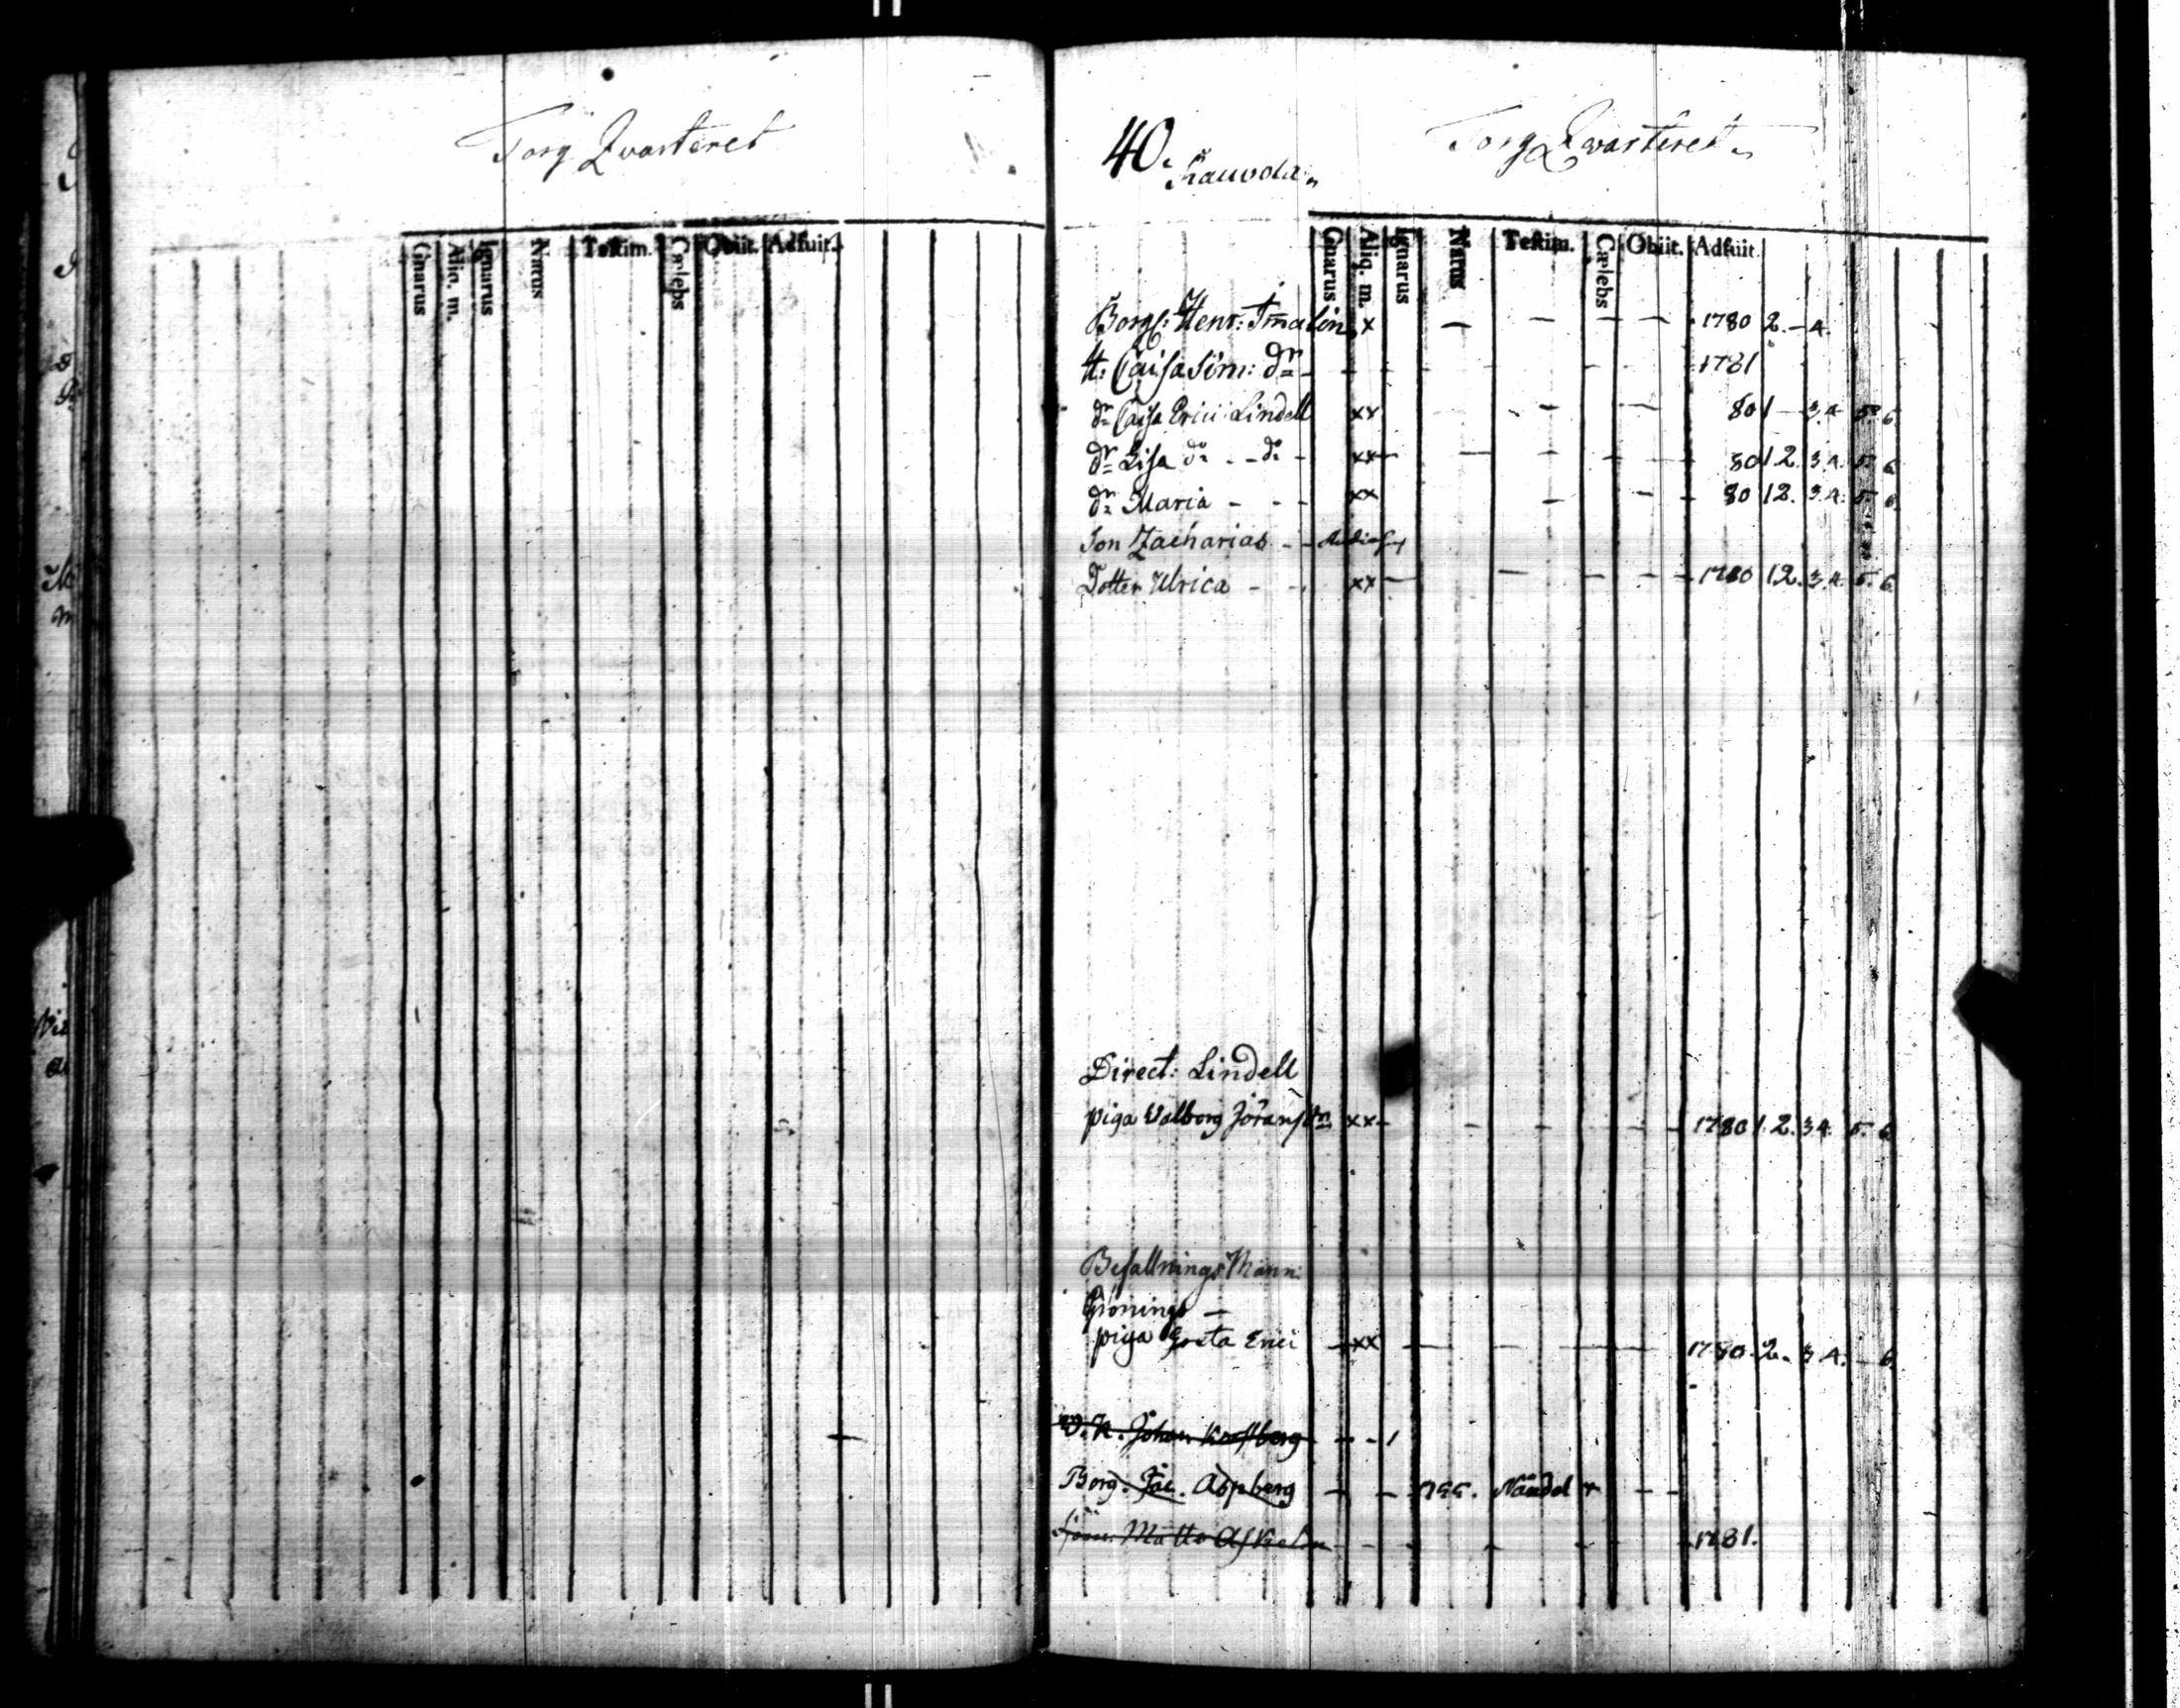 Torg Qvarteret
Gnarus Aliq. m. Ignarus Natus Testim. Cælebs Obiit. Adfuit.
40. Torg Qvarteret
Kauvola
Gnarus Aliq. m. Ignarus Natus Testim. Cælebs Obiit. Adfuit.
Borg: Henr: Tmalin x — — — — 1780 2. — 4.
H: Caisa Sim: dr — 1781
dr Caisa Erici Lindell xx — — 80 1 — 3.4. 5. 6.
dr Lisa do - - do - xx — — — — 80 1 2. 3.4. 5. 6.
dr Maria - - - xx — — 80 1 2. 3.4. 5. 6.
Son Zacharias - -
Dotter Ulrica - - xx — — — 1780 1 2. 3.4. 5. 6.
Direct: Lindell
piga Valborg Jöransdr xx - - - 1780 1. 2. 3 4. 5. 6.
Befallnings Mann
Gronings —
piga Greta Erici — xx — — 1780. 2. 3 4. — 6.
Johan
Borg. Jac. Aspberg — - 1755. - -
Matts - - - - 1781.